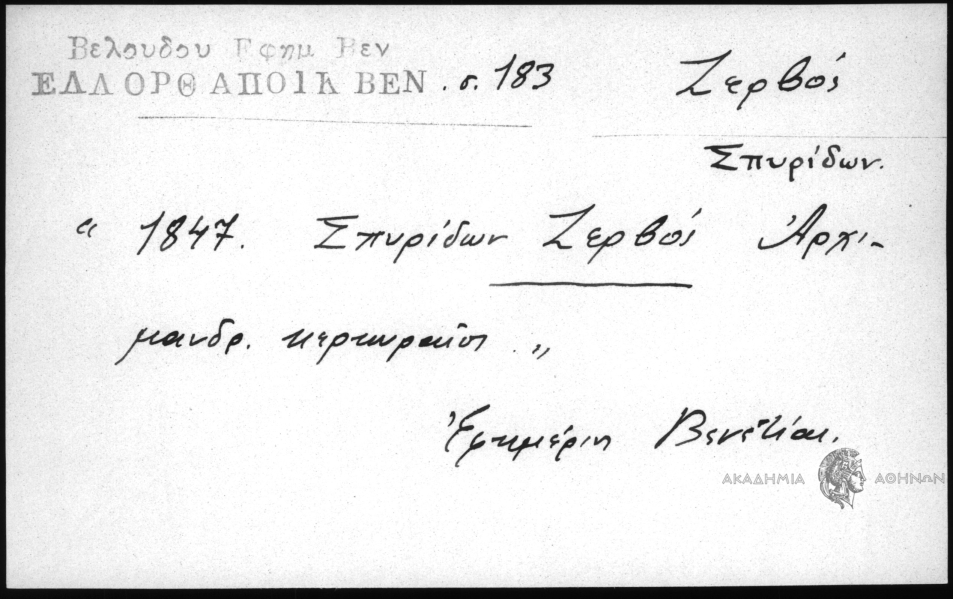 Βελουδου Εφημ Βεν
ΕΛΛΟΡΘ ΑΠΟΙΚ ΒΕΝ . σ. 183
Ζερβός
Σπυρίδων.
“ 1847. Σπυρίδων Ζερβός Ἀρχι-
μανδρ. κερκυραῖος „
Ἐφημέριος Βενετίας.
ΑΚΑΔΗΜΙΑ ΑΘΗΝΩΝ